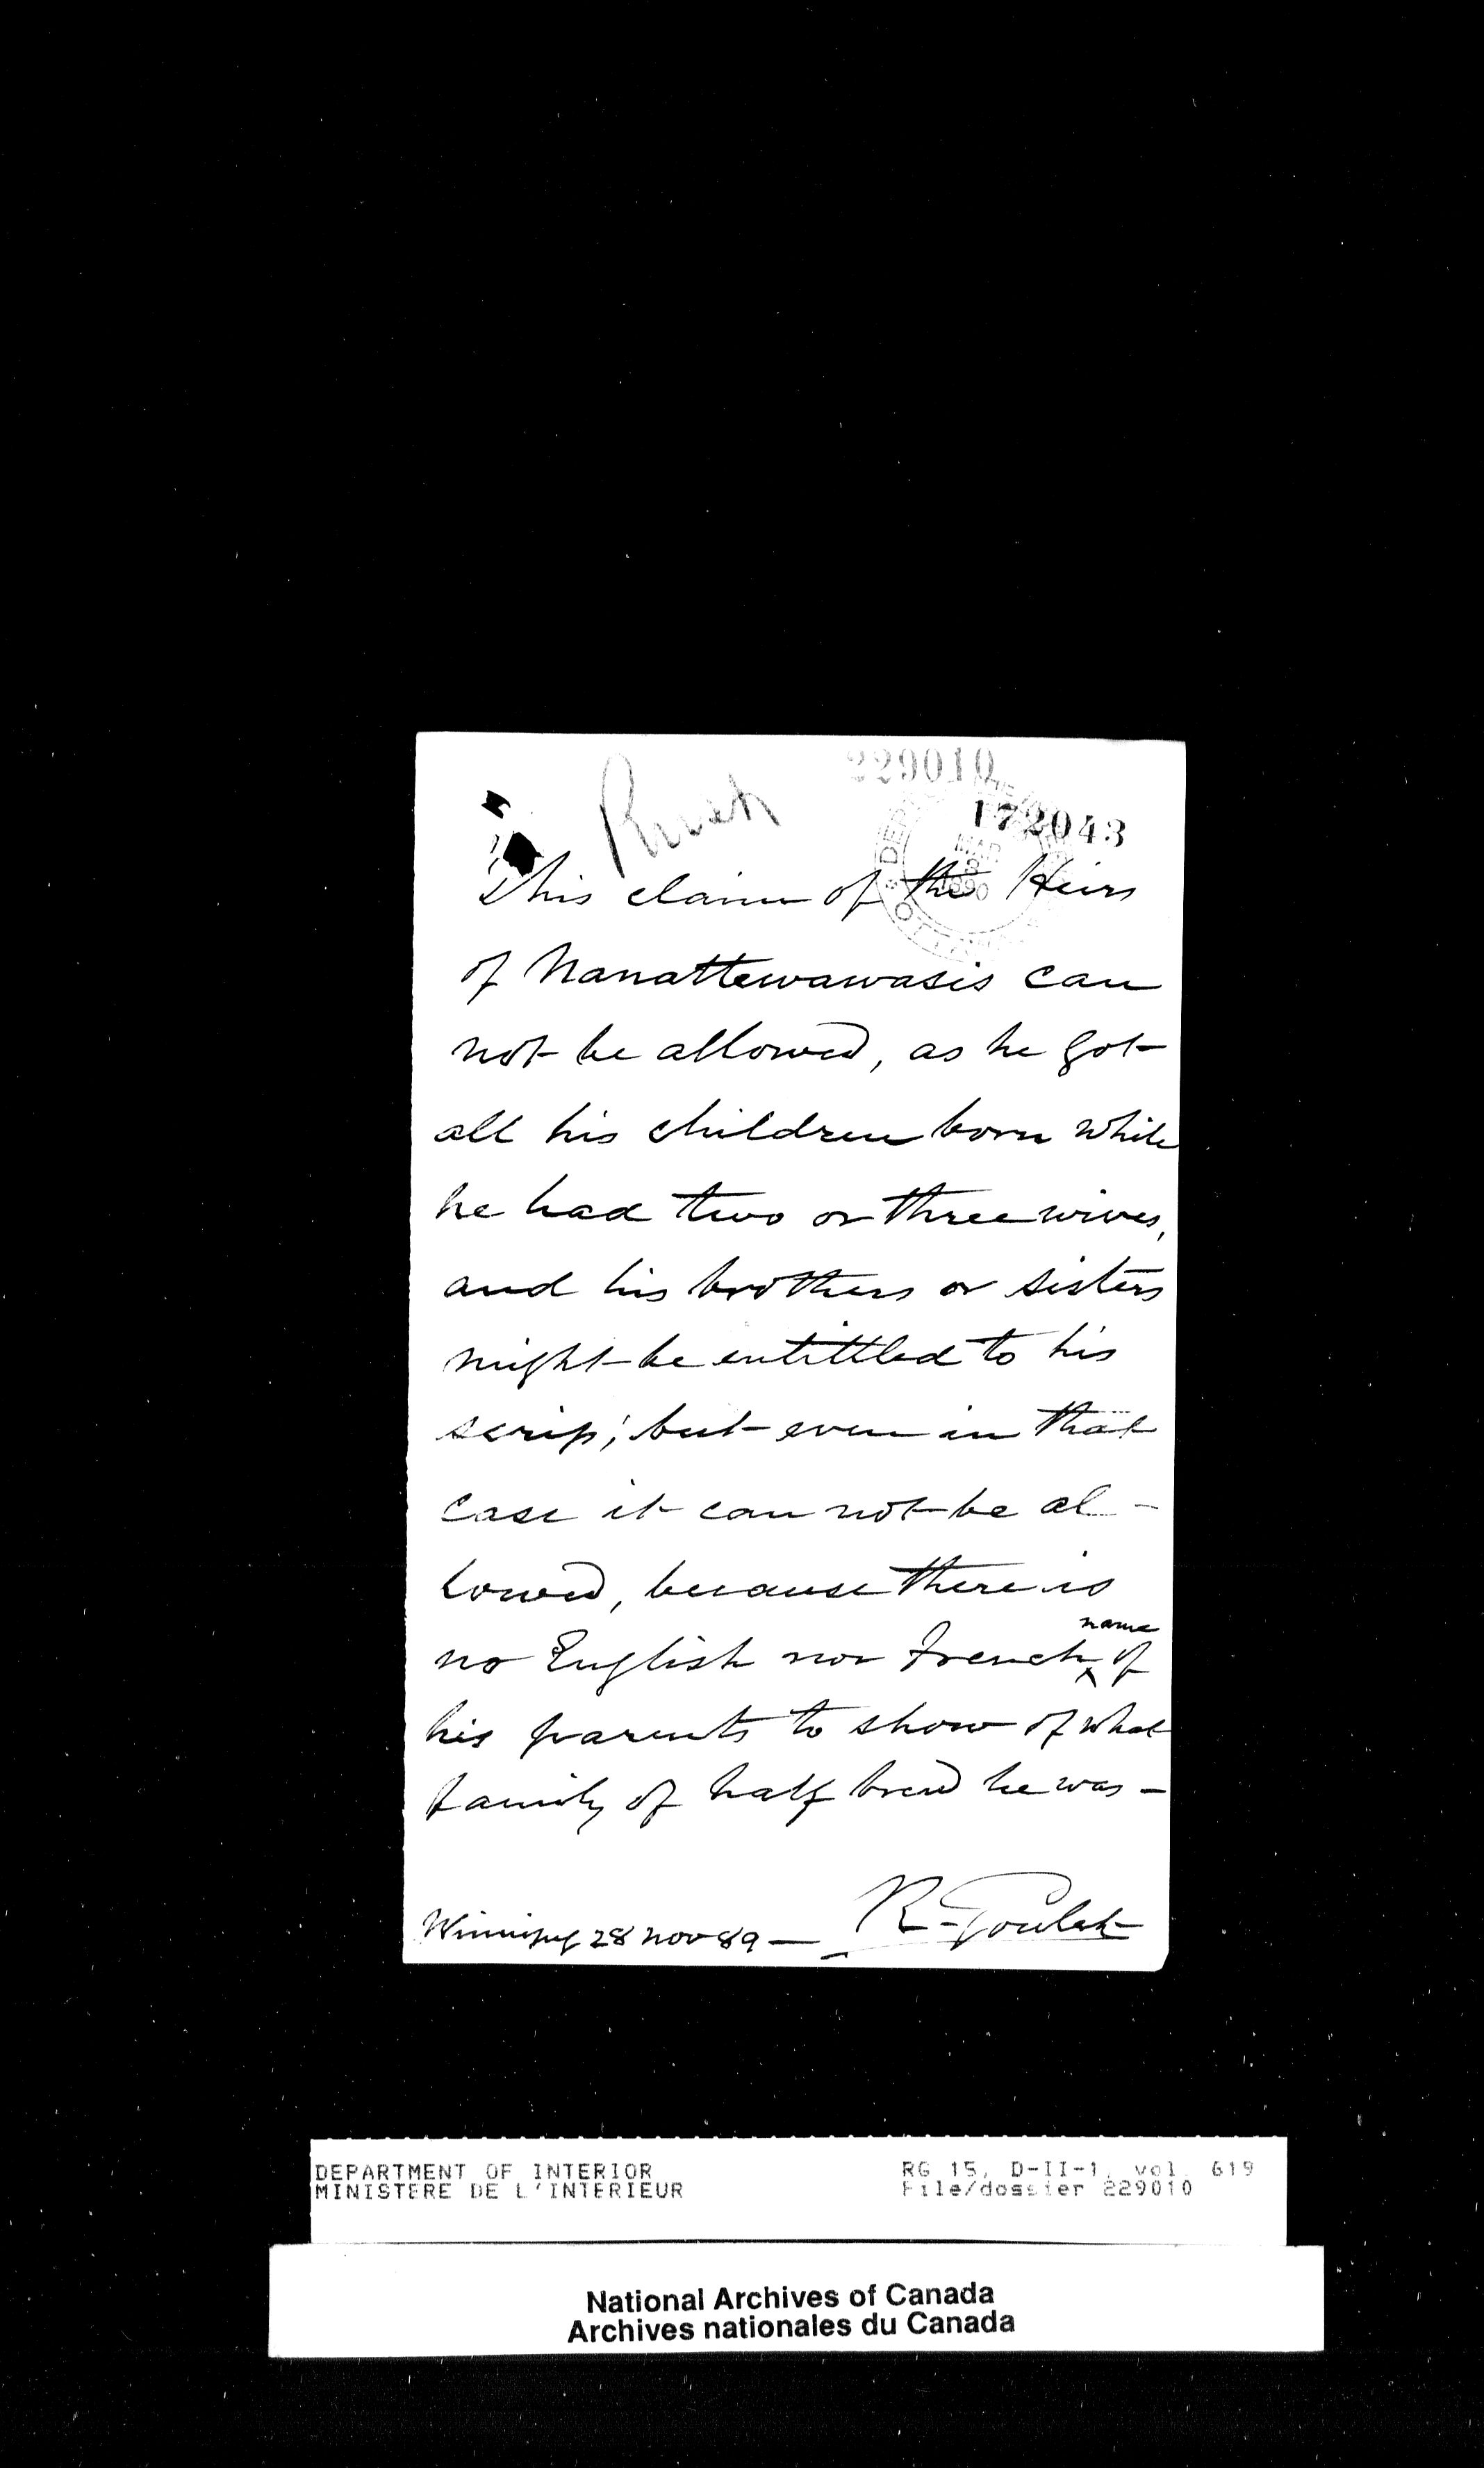 229010
172043
This claim of the Heirs
of Nanattewawasis can
not be allowed, as he got
all his children born while
he had two or three wives,
and his brothers or sisters
might be entittled to his
scrip; but even in that
case it can not be al-
lowed, because there is
name
no English nor French ^ of
his parents to show of what
family of half breed he was -
Winnipeg 28 Nov 89 — R. Goulet
DEPARTMENT OF INTERIOR RG 15, D-II-1, vol. 619
MINISTERE DE L'INTERIEUR File/dossier 229010
National Archives of Canada
Archives nationales du Canada